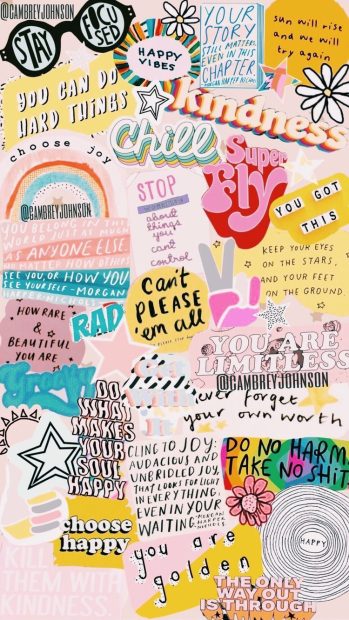 @CAMBREYJOHNSON
STAY FOCUSED
HAPPY
VIBES
YOUR
STORY
STILL MATTERS,
EVEN IN THIS
CHAPTER.
sun will rise
and we will
try again
YOU CAN DO
HARD THINGS
kindness
Chill
choose joy
Super
Fly
STOP
about
things
you
can't
control
YOU GOT
THIS
@CAMBREYJOHNSON
YOU BELONG IN THIS
WORLD JUST AS MUCH
AS ANYONE ELSE.
NO MATTER HOW OTHERS
SEE YOU OR HOW YOU
SEE YOURSELF -MORGAN
HARPER NICHOLS
KEEP YOUR EYES
ON THE STARS,
AND YOUR FEET
ON THE GROUND.
Can't
PLEASE
'em all
HOW RARE
&
BEAUTIFUL
YOU ARE
RAD
YOU ARE
LIMITLESS
@CAMBREYJOHNSON
Groovy
DO
WHAT
MAKES
YOUR
SOUL
HAPPY
never forget
your own worth
CLING TO JOY:
AUDACIOUS AND
UNBRIDLED JOY,
THAT LOOKS FOR LIGHT
IN EVERYTHING,
EVEN IN YOUR
WAITING. -MORGAN
HARPER
NICHOLS
DO NO HARM,
TAKE NO SHIT.
choose
happy
HAPPY
you are
golden
KILL
THEM WITH
KINDNESS.
THE ONLY
WAY OUT
IS THROUGH